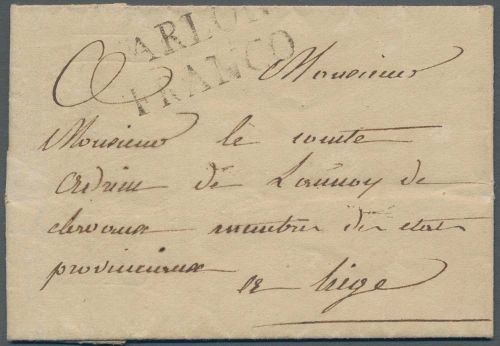 ARLON
FRANCO
Monsieur
Monsieur le comte
Adrien de Lannoy de
clervaux membre des etats
provinciaux
de liege